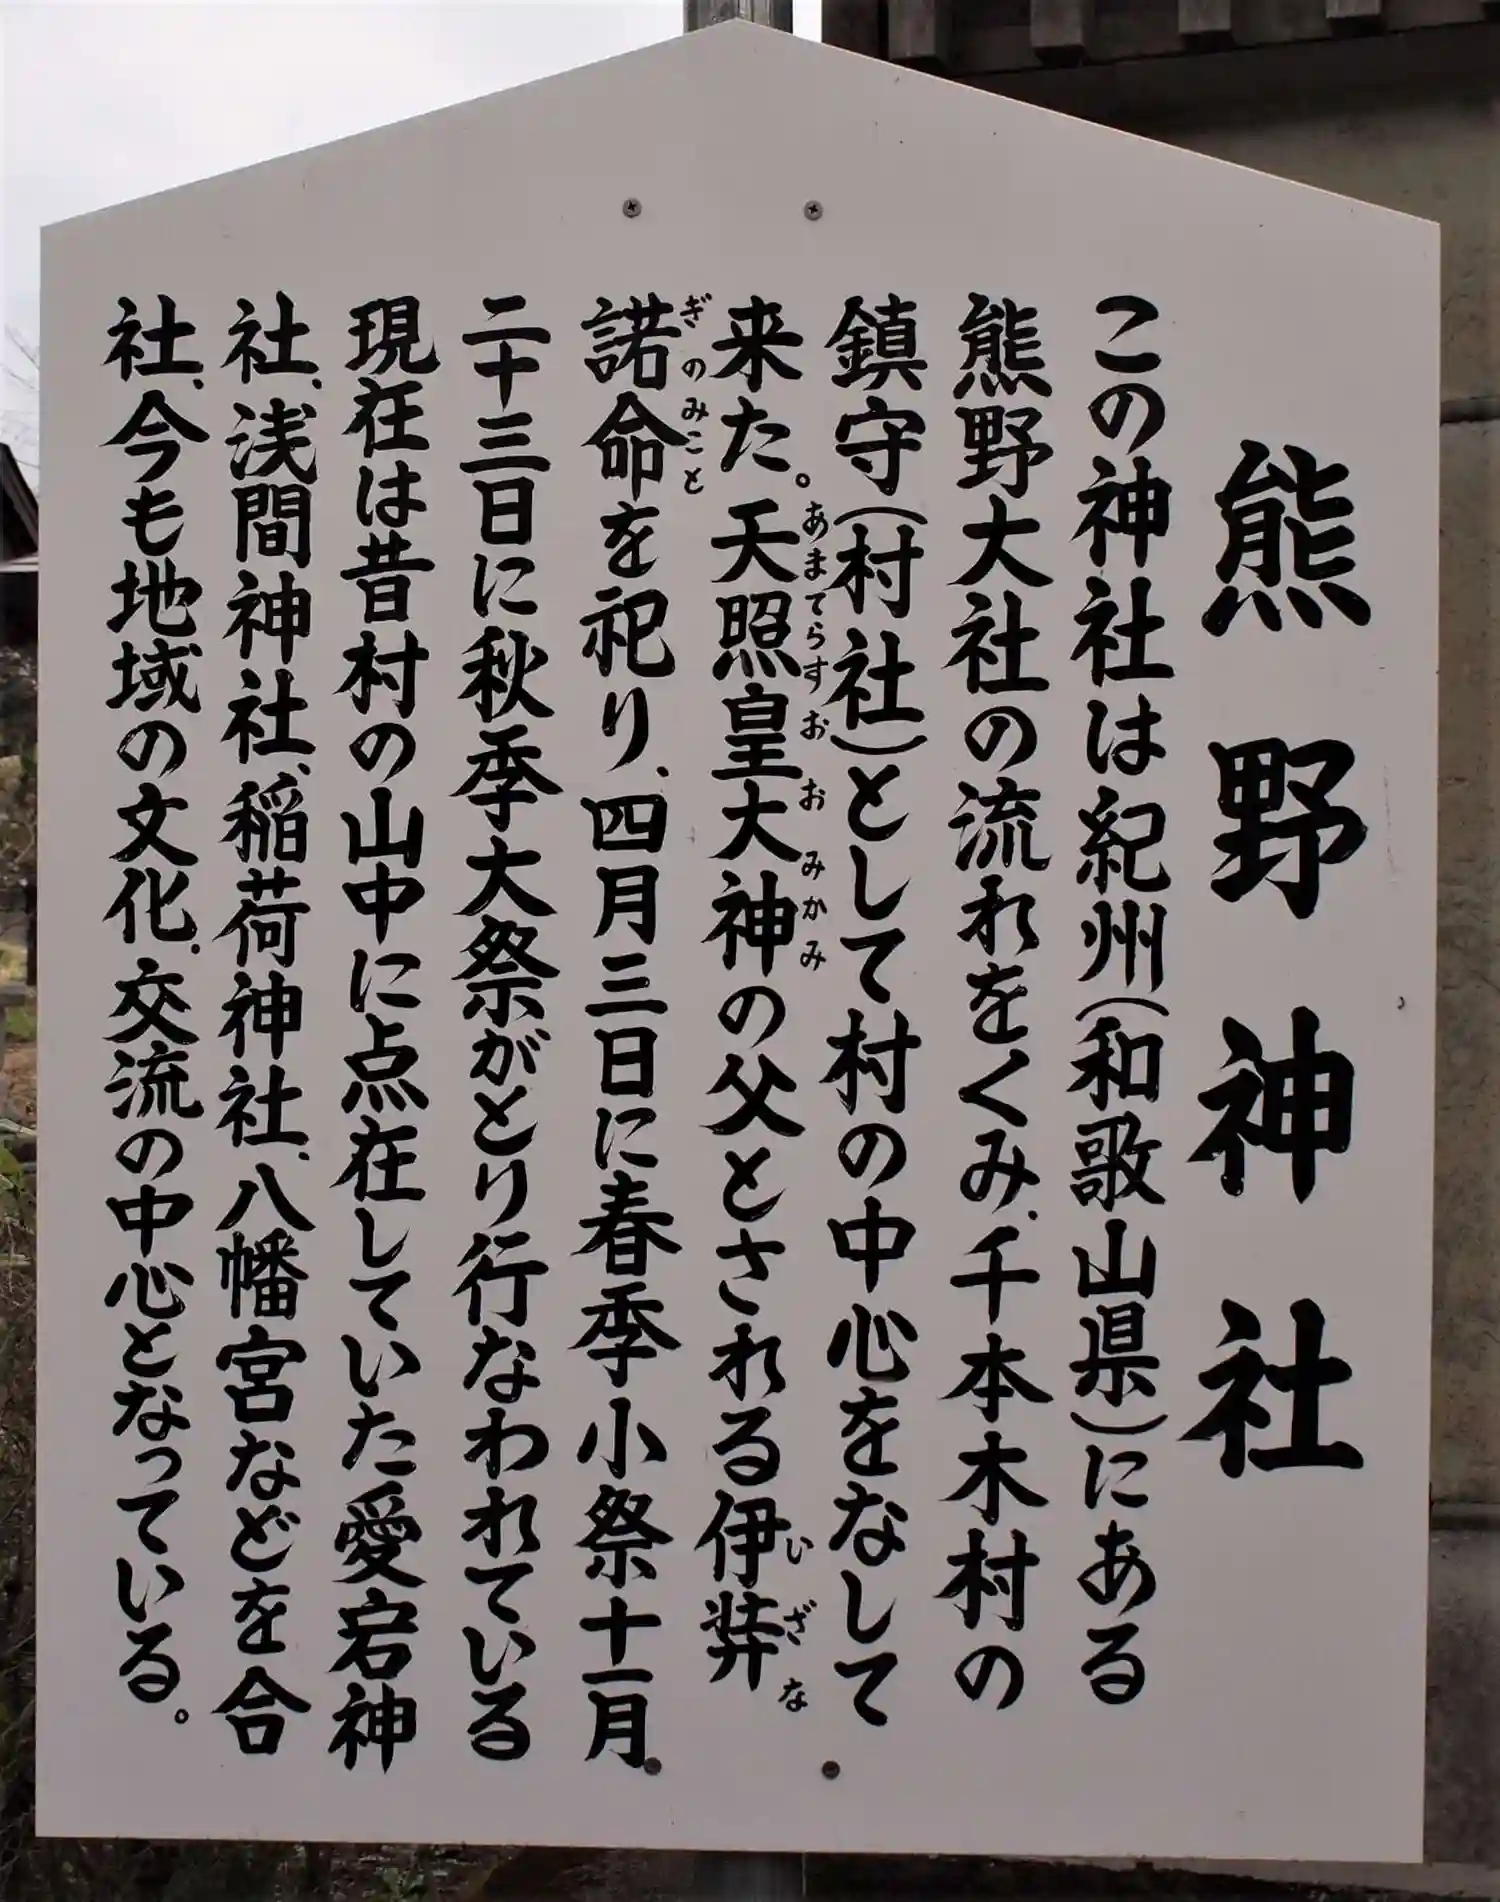 熊野神社
この神社は紀州(和歌山県)にある
熊野大社の流れをくみ、千本木村の
鎮守(村社)として村の中心をなして
来た。天照皇大神の父とされる伊弉
あまてらすおおみかみ
いざな
諾命を祀り、四月三日に春季小祭十一月
ぎのみこと
二十三日に秋季大祭がとり行なわれている
現在は昔村の山中に点在していた愛宕神
社、浅間神社、稲荷神社、八幡宮などを合
社、今も地域の文化、交流の中心となっている。